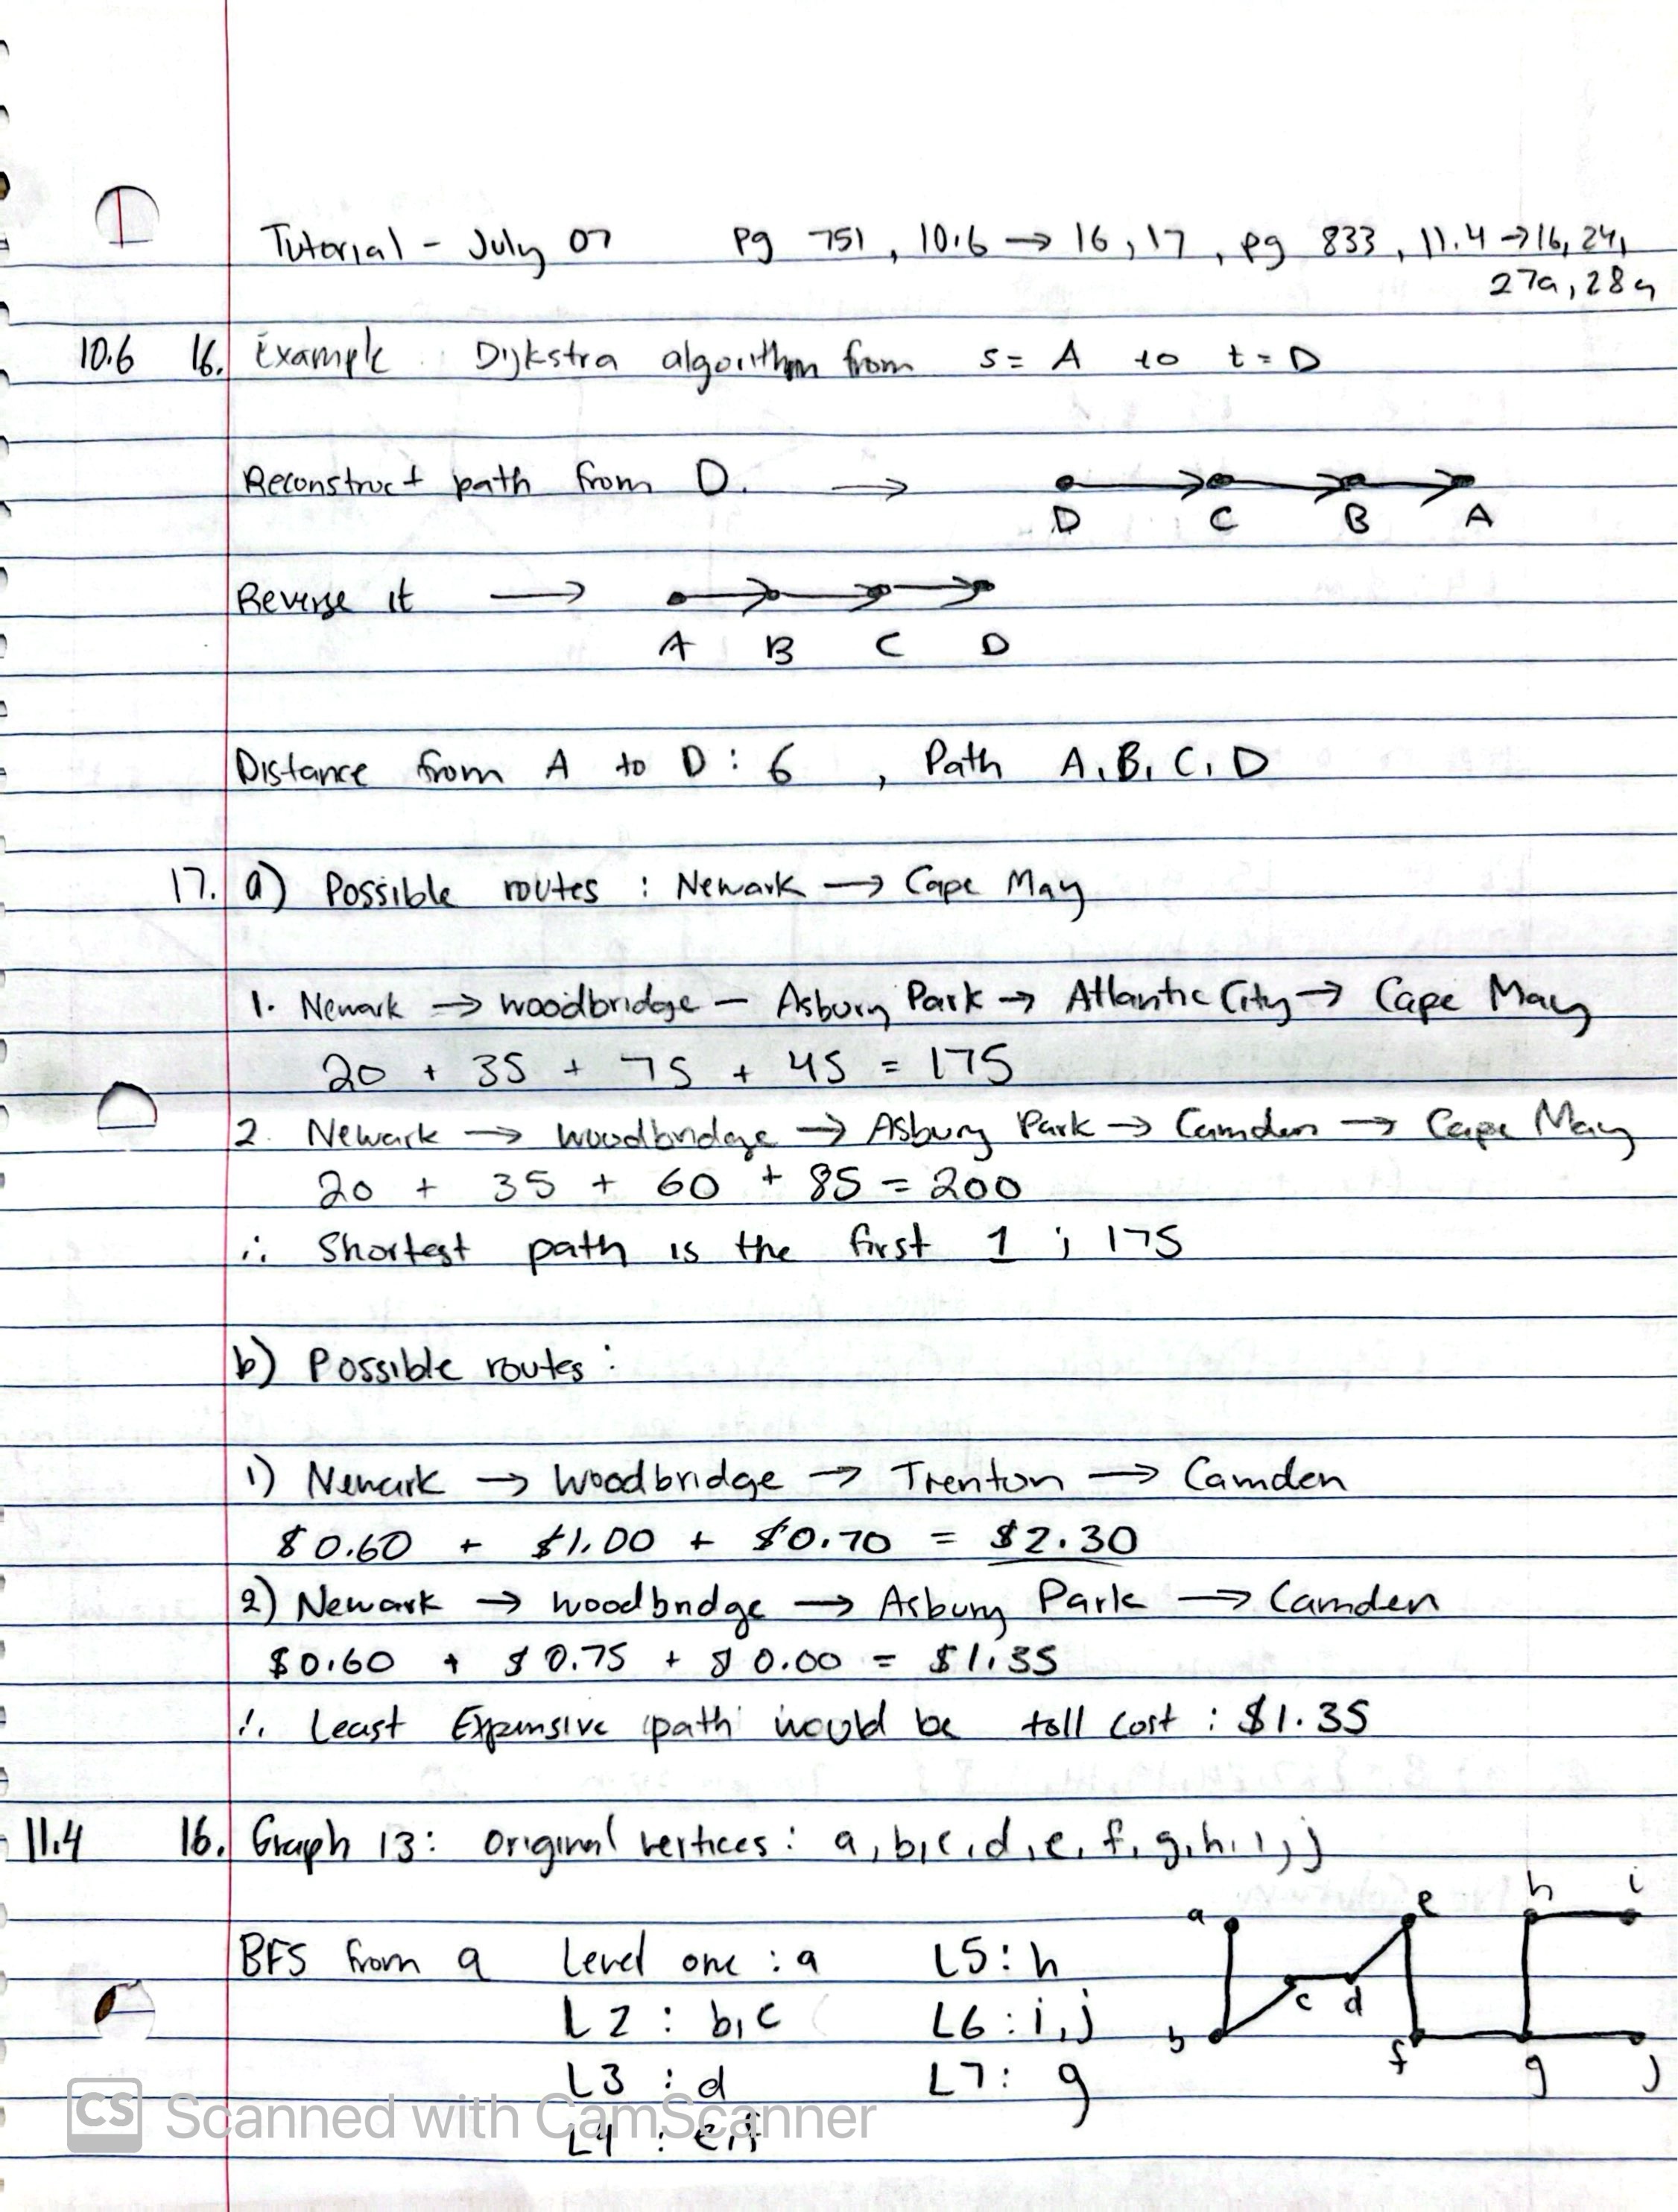 Tutorial - July 07 pg 751, 10.6 → 16, 17, pg 833, 11.4 → 16, 24,
27a, 28a
10.6 16. Example: Dijkstra algorithm from s = A to t = D
Reconstruct path from D. →
D C B A
Reverse it →
A B C D
Distance from A to D : 6 , Path A, B, C, D
17. a) Possible routes : Newark → Cape May
1. Newark → Woodbridge – Asbury Park → Atlantic City → Cape May
20 + 35 + 75 + 45 = 175
2. Newark → Woodbridge → Asbury Park → Camden → Cape May
20 + 35 + 60 + 85 = 200
∴ Shortest path is the first 1 ; 175
b) Possible routes :
1) Newark → Woodbridge → Trenton → Camden
$0.60 + $1.00 + $0.70 = $2.30
2) Newark → Woodbridge → Asbury Park → Camden
$0.60 + $0.75 + $0.00 = $1.35
∴ Least Expensive path would be toll cost : $1.35
11.4 16. Graph 13: Original vertices : a, b, c, d, e, f, g, h, i, j
a e h i
BFS from a Level one : a L5 : h
c d
L2 : b, c L6 : i, j
b f g j
L3 : d L7 : g
L4 : e, f
CS Scanned with CamScanner